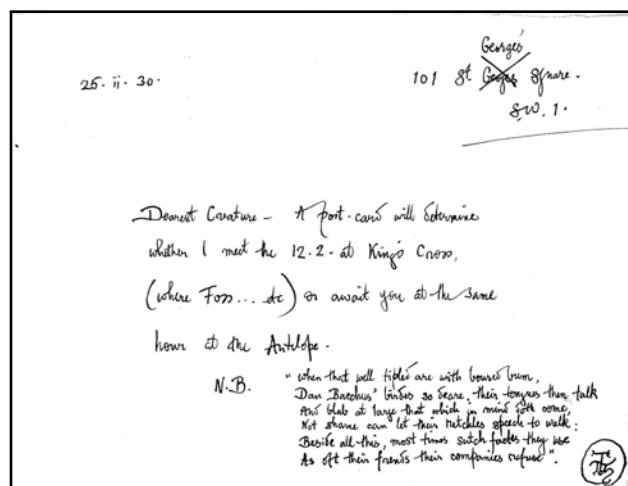 Georges'
25 · ii · 30 · 101 St. Georges Square.
S.W. 1.
Dearest Creature – A post-card will determine
whether I meet the 12.2 – at King's Cross,
(where Foss... etc) or await you at the same
hour at the Antelope.
N.B. "when that well tipled are with boused bum,
Dan Bacchus' birdes so deare, their tongues then talk
And blab at large that which in mind doth come,
Not shame can let their retchles speech to walk:
Beside all this, most times sutch factes they use
As oft their frends their companies refuse".